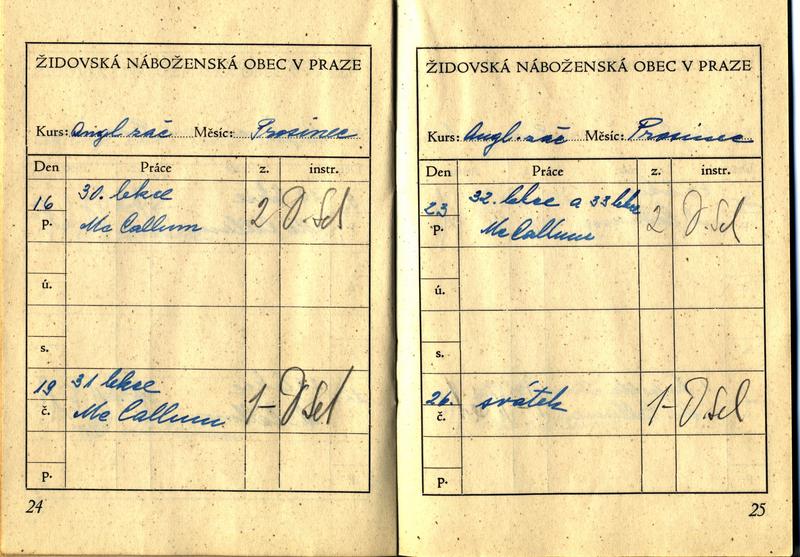 ŽIDOVSKÁ NÁBOŽENSKÁ OBEC V PRAZE
Kurs: Angl. zač Měsíc: Prosinec
Den Práce z. instr.
16 30. lekce
p. Mc Callum 2
ú.
s.
19 31 lekce
č. Mc Callum 1-
p.
24
ŽIDOVSKÁ NÁBOŽENSKÁ OBEC V PRAZE
Kurs: Angl. zač Měsíc: Prosinec
Den Práce z. instr.
23 32. lekce a 33 lekce
p. Mc Callum 2
ú.
s.
26. svátek 1-
č.
p.
25